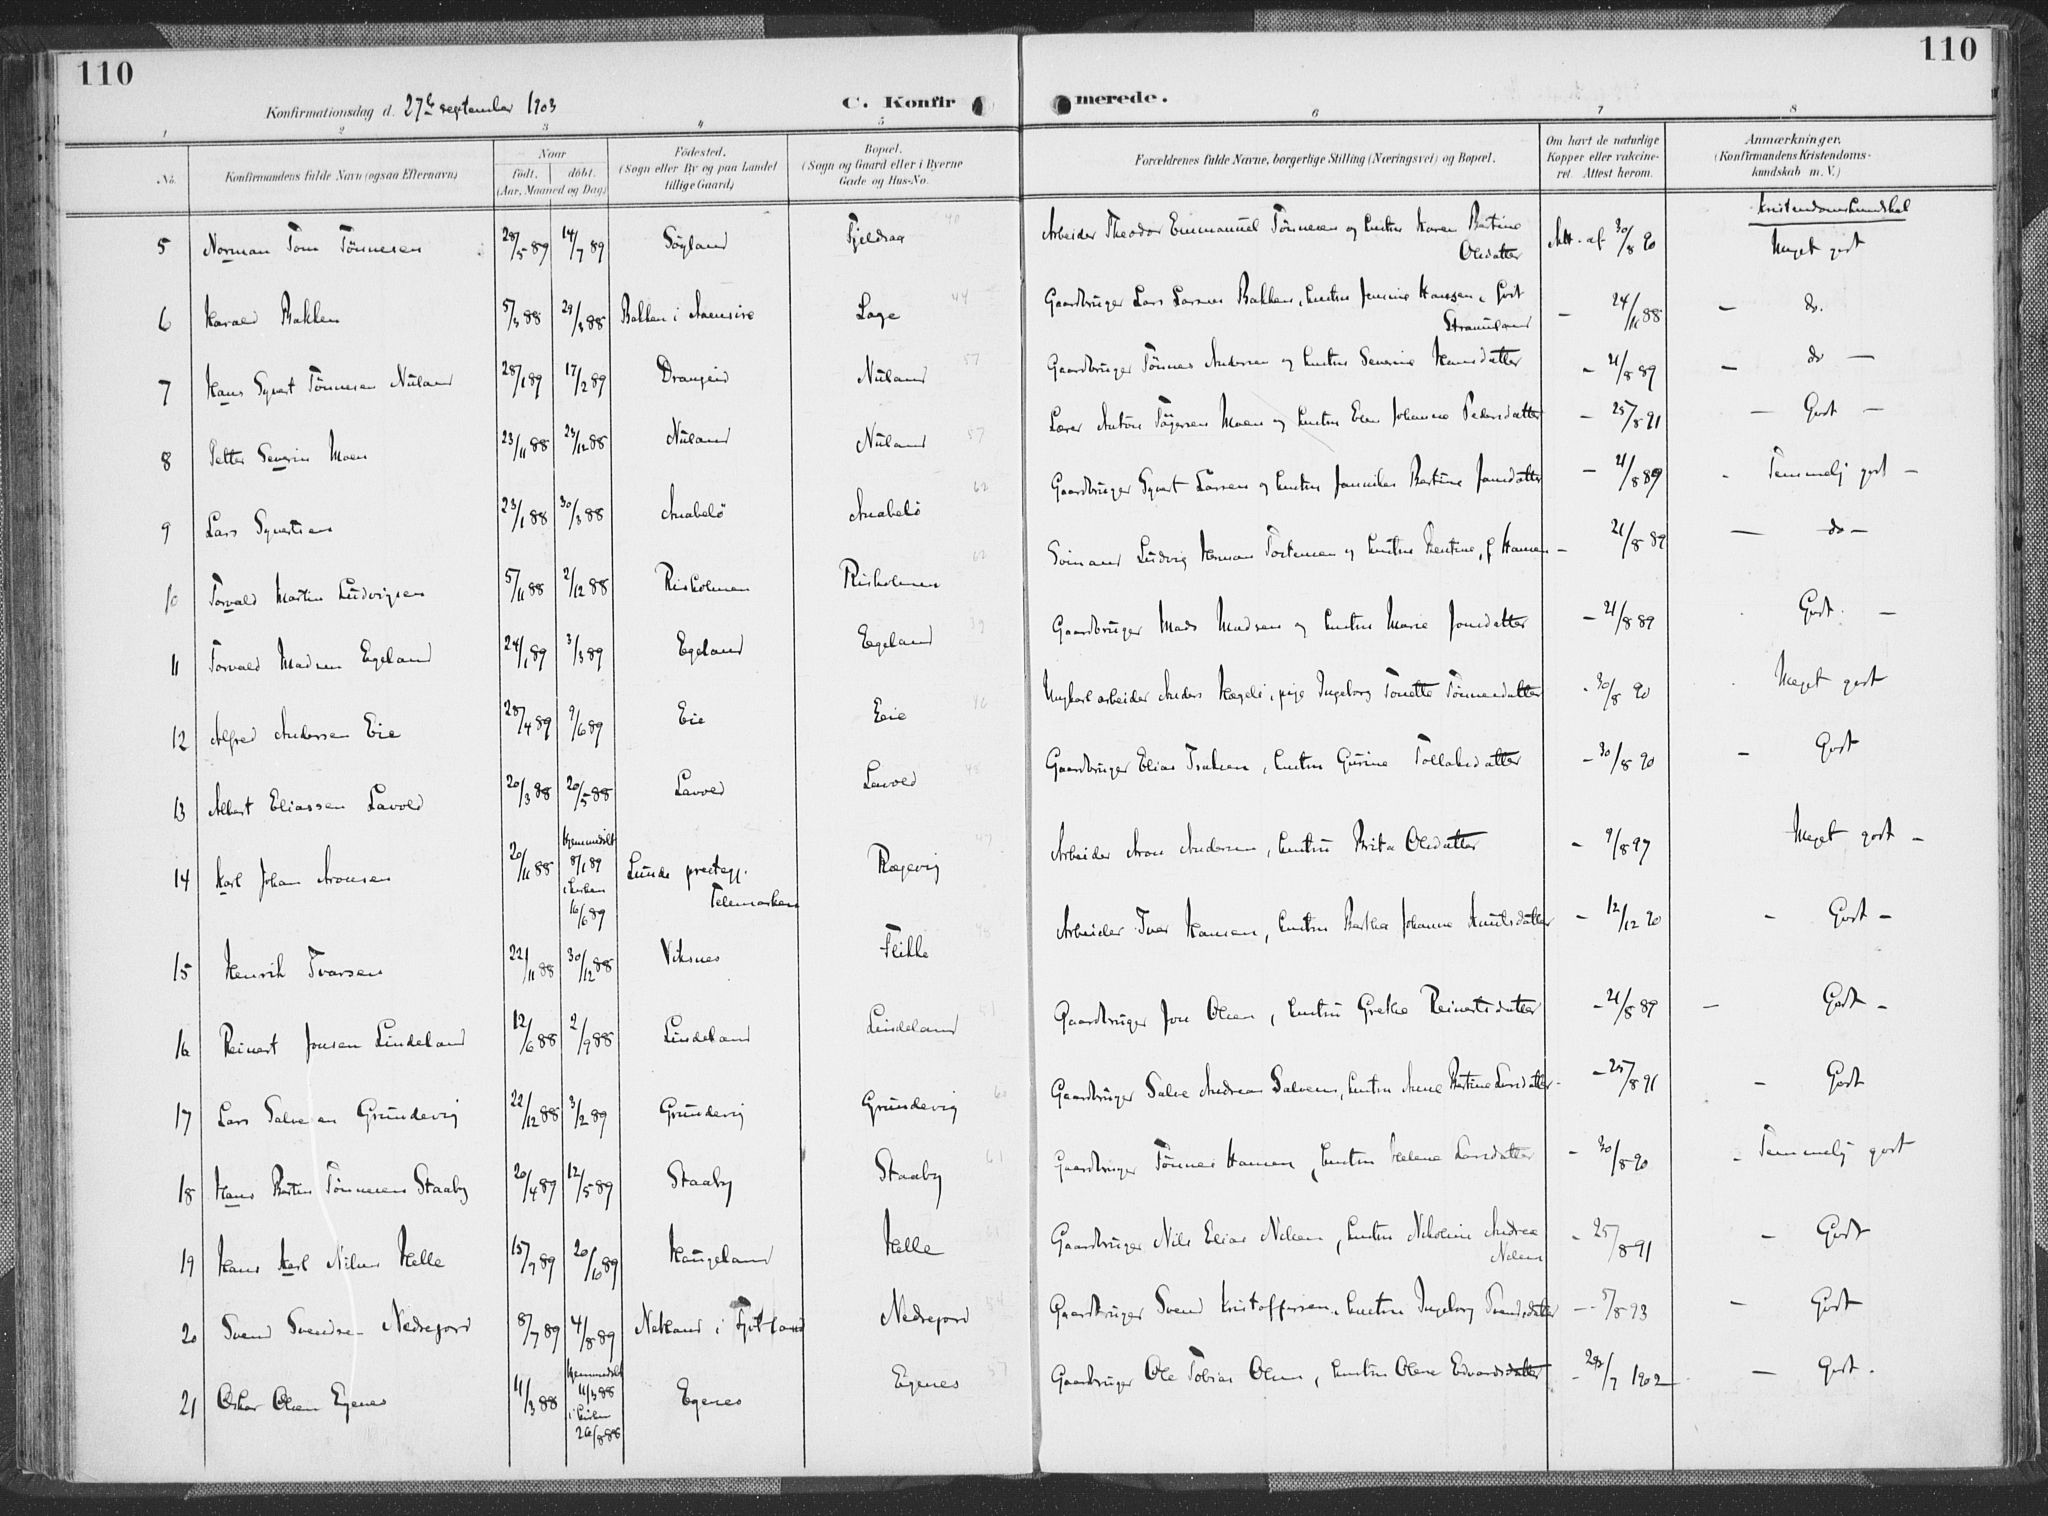 110
110
Konfirmationsdag d. 27de september 1903
C. Konfirmerede.
1 2 3 4 5 6 7 8
No. Konfirmandens fulde Navn (ogsaa Efternavn)
Naar födt. döbt. (Aar, Maaned og Dag)
Födested. (Sogn eller By og paa Landet tillige Gaard)
Bopæl. (Sogn og Gaard eller i Byerne Gade og Hus-No.
Forældrenes fulde Navne, borgerlige Stilling (Næringsvei) og Bopæl.
Om havt de naturlige Kopper eller vaccineret. Attest herom.
Anmærkninger. (Konfirmandens Kristendomskundskab m. V.)
Kristendomskundskab
5 Norman Tom Tönnesen 28/5 89 14/7 89 Söyland Fjeldsaa 40 Arbeider Theodor Emmanuel Tönnesen og hustru Karen Bertine Olsdatter Att. af 30/8 90 Meget godt
6 Harald Bakken 5/3 88 29/3 88 Bakken i Aaensire Loge 44 Gaardbruger Lars Larsen Bakken, hustru Jensine Hansen, födt 24/11 88 — do.
7 Hans Syvert Tönnesen Nuland 28/1 89 17/2 89 Drangeid Nuland 57 Gaardbruger Tönnes Andersen og hustru Severine Hansdatter — 21/8 89 — do —
8 Petter Severin Moen 23/11 88 23/12 88 Nuland Nuland 57 Lærer Anton Törgersen Moen og hustru Elen Johanne Pedersdatter — 25/8 91 — Godt —
9 Lars Syvertsen 23/1 88 30/3 88 Anabelö Anabelö 62 Gaardbruger Syvert Larsen og hustru Bertine Jansdatter — 21/8 89 - Temmelig godt —
10 Torvald Martin Ludvigsen 5/11 88 2/12 88 Risholmen Risholmen 62 Sömand Ludvig Herman Torkensen og hustru Bentine, f. Hansen — 21/8 89 — do —
11 Torvald Madsen Egeland 24/1 89 3/3 89 Egeland Egeland 39 Gaardbruger Mads Madsen og hustru Marie Jonsdatter — 21/8 89 Godt. —
12 Alfred Andersen Eie 28/4 89 9/6 89 Eie Eie 46 Ungkarl arbeider Anders Hægeli, pige Ingeborg Tonette Tönnesdatter - 30/8 90 Meget godt
13 Albert Eliassen Lavold 20/3 88 20/5 88 Lavold Lavold 48 Gaardbruger Elias Isaksen, hustru Gurine Tollaksdatter — 30/8 90 — Godt
14 Karl Johan Aronsen 20/11 88 hjemmedöbt 8/1 89 i kirken 16/6 89 Lunde prestegj. Telemarken Rægevig 47 Arbeider Aron Andersen, hustru Brita Olsdatter - 9/8 97 Meget godt —
15 Henrik Ivarsen 22/11 88 30/12 88 Viksnes Flikke 48 Arbeider Ivar Hansen, hustru Bertha Johanne Knutsdatter — 12/12 90 — Godt —
16 Reinert Jonsen Lindeland 12/6 88 2/9 88 Lindeland Lindeland 51 Gaardbruger Jon Olsen, hustru Grethe Reinertsdatter — 21/8 89 — Godt —
17 Lars Salvesen Grundevig 22/12 88 3/2 89 Grundevig Grundevig 60 Gaardbruger Salve Andreas Salvesen, hustru Anne Bertine Larsdatter — 25/8 91 — Godt
18 Hans Bertin Tönnesen Staaby 20/4 89 12/5 89 Staaby Staaby 61 Gaardbruger Tönnes Hansen, hustru Helene Larsdatter — 30/8 90 — Temmelig godt
19 Hans Karl Nilsen Helle 15/9 89 20/10 89 Haugeland Helle 61 Gaardbruger Nils Elias Nilsen, hustru Nikoline Andrea Nilsen — 25/8 91 — Godt
20 Svend Svendsen Nedrejord 8/7 89 4/8 89 Netland i Fjotland Nedrejord 54 Gaardbruger Svend Kristoffersen, hustru Ingeborg Svendsdatter — 5/8 93 — Godt
21 Oskar Olsen Egenes 11/3 88 hjemmedöbt 11/3 88 i kirken 26/8 88 Egenes Egenes 57 Gaardbruger Ole Tobias Olsen, hustru Olene Edvardsdatter — 28/7 1902 — Godt.